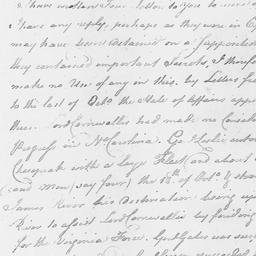 I have written Four letters to you &
I have any reply, perhaps as they were in Cy
may have been detained on a Supposition
they contained important Secrets, I therefore
make no Use of any in this. by Letters fr
to the last of Octr. the State of Affairs app
thus. Lord Cornwallis had made no Consid
Progress in N. Carolina. Gl. Leslie
Chesapeak with a large Fleet and about
(and Men, say four) the 15th of Octr. &
James River his Destination being up
River to assist Lord Cornwallis by finding
for the Virginia Force. Genl. Gates was